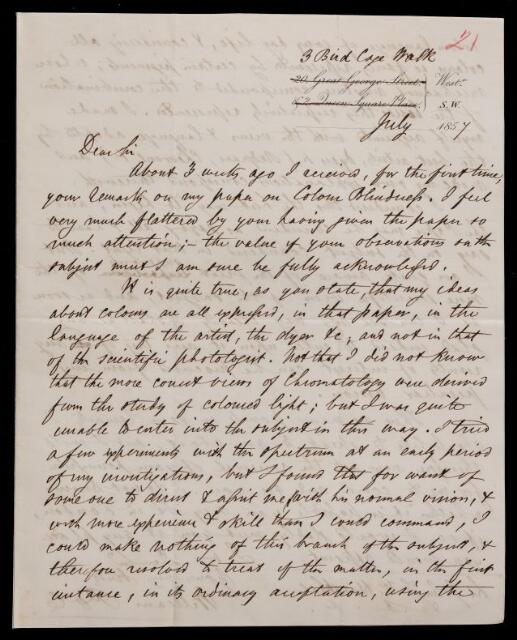 21
3 Bird Cage Walk
20 Great George Street, West.
2 Queen Square Place, S.W.
July 1857
Dear Sir
About 3 weeks ago I received, for the first time,
your remarks on my paper on Colour Blindness. I feel
very much flattered by your having given the paper so
much attention; – the value of your observations on the
subject must I am sure be fully acknowledged.
It is quite true, as you state, that my ideas
about colours are all expressed, in that paper, in the
language of the artist, the dyer &c, and not in that
of the scientific photologist. Not that I did not know
that the more correct views of Chromatology were derived
from the study of coloured light; but I was quite
unable to enter into the subject in this way. I tried
a few experiments with the spectrum at an early period
of my investigations, but I found that for want of
some one to direct & assist me, with his normal vision, &
with more experience & skill than I could command, I
could make nothing of this branch of the subject, &
therefore resolved to treat of the matter, in the first
instance, in its ordinary acceptation, using the